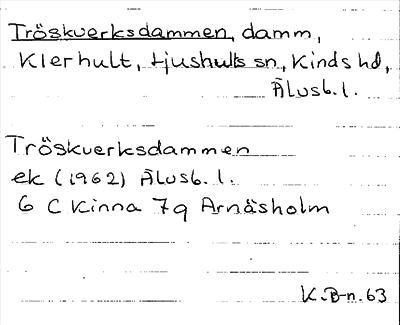 Tröskverksdammen, damm,
Klerhult, Ljushults sn, Kinds hd,
Älvsb. l.
Tröskverksdammen
ek (1962) Älvsb. l.
6 C Kinna 7g Arnäsholm
K.B-n. 63